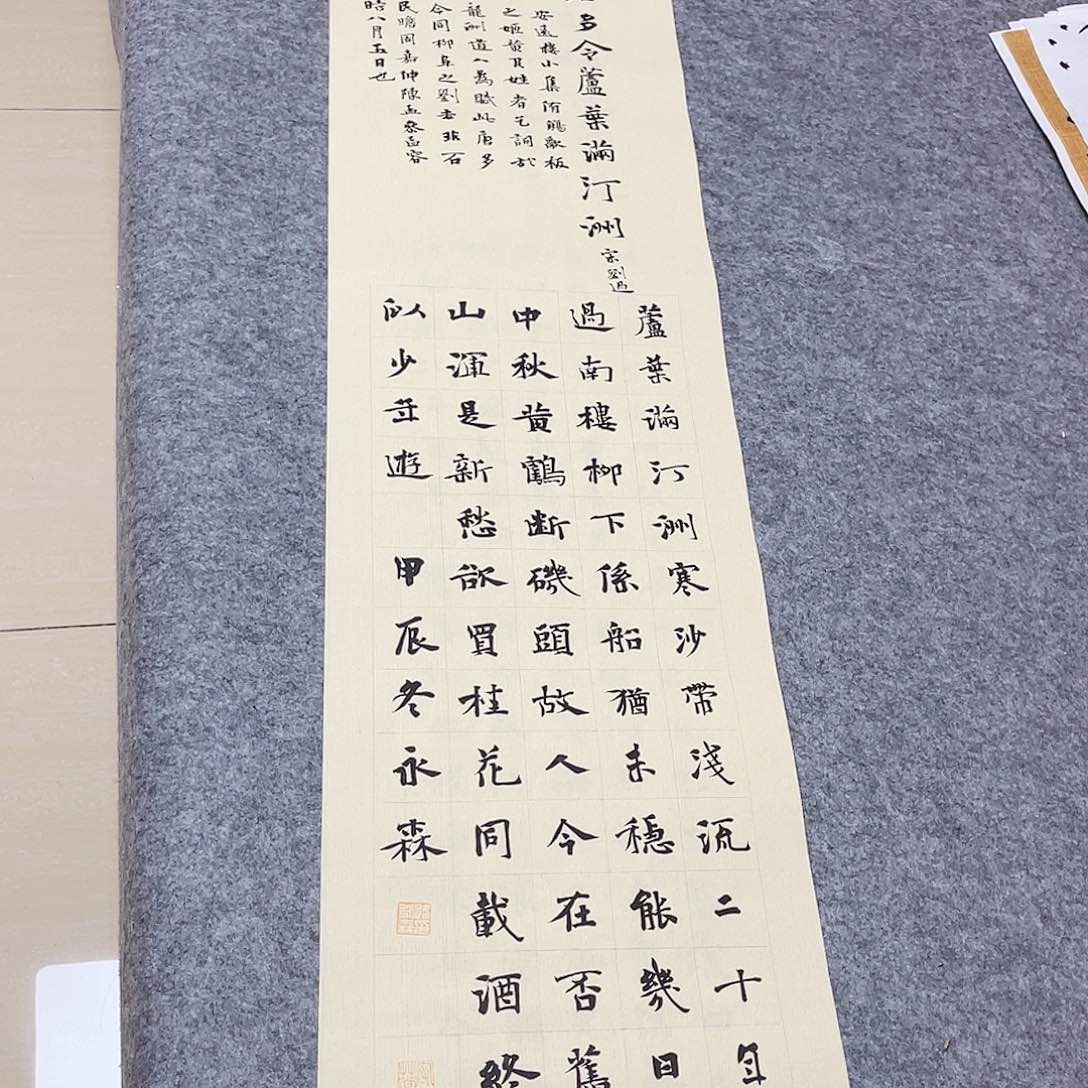 多令蘆葉滿汀洲 宋劉過
安遠樓小集侑觴歌板
之姬黄其姓者乞詞於
龍洲道人為賦此唐多
令同柳阜之劉去非石
民瞻周嘉仲陳孟參孟容
時八月五日也
蘆葉滿汀洲寒沙帶淺流二十年
過南樓柳下係船猶未穩能幾日
中秋黄鶴斷磯頭故人今在否舊
山渾是新愁欲買桂花同載酒終
似少年遊 甲辰冬永森